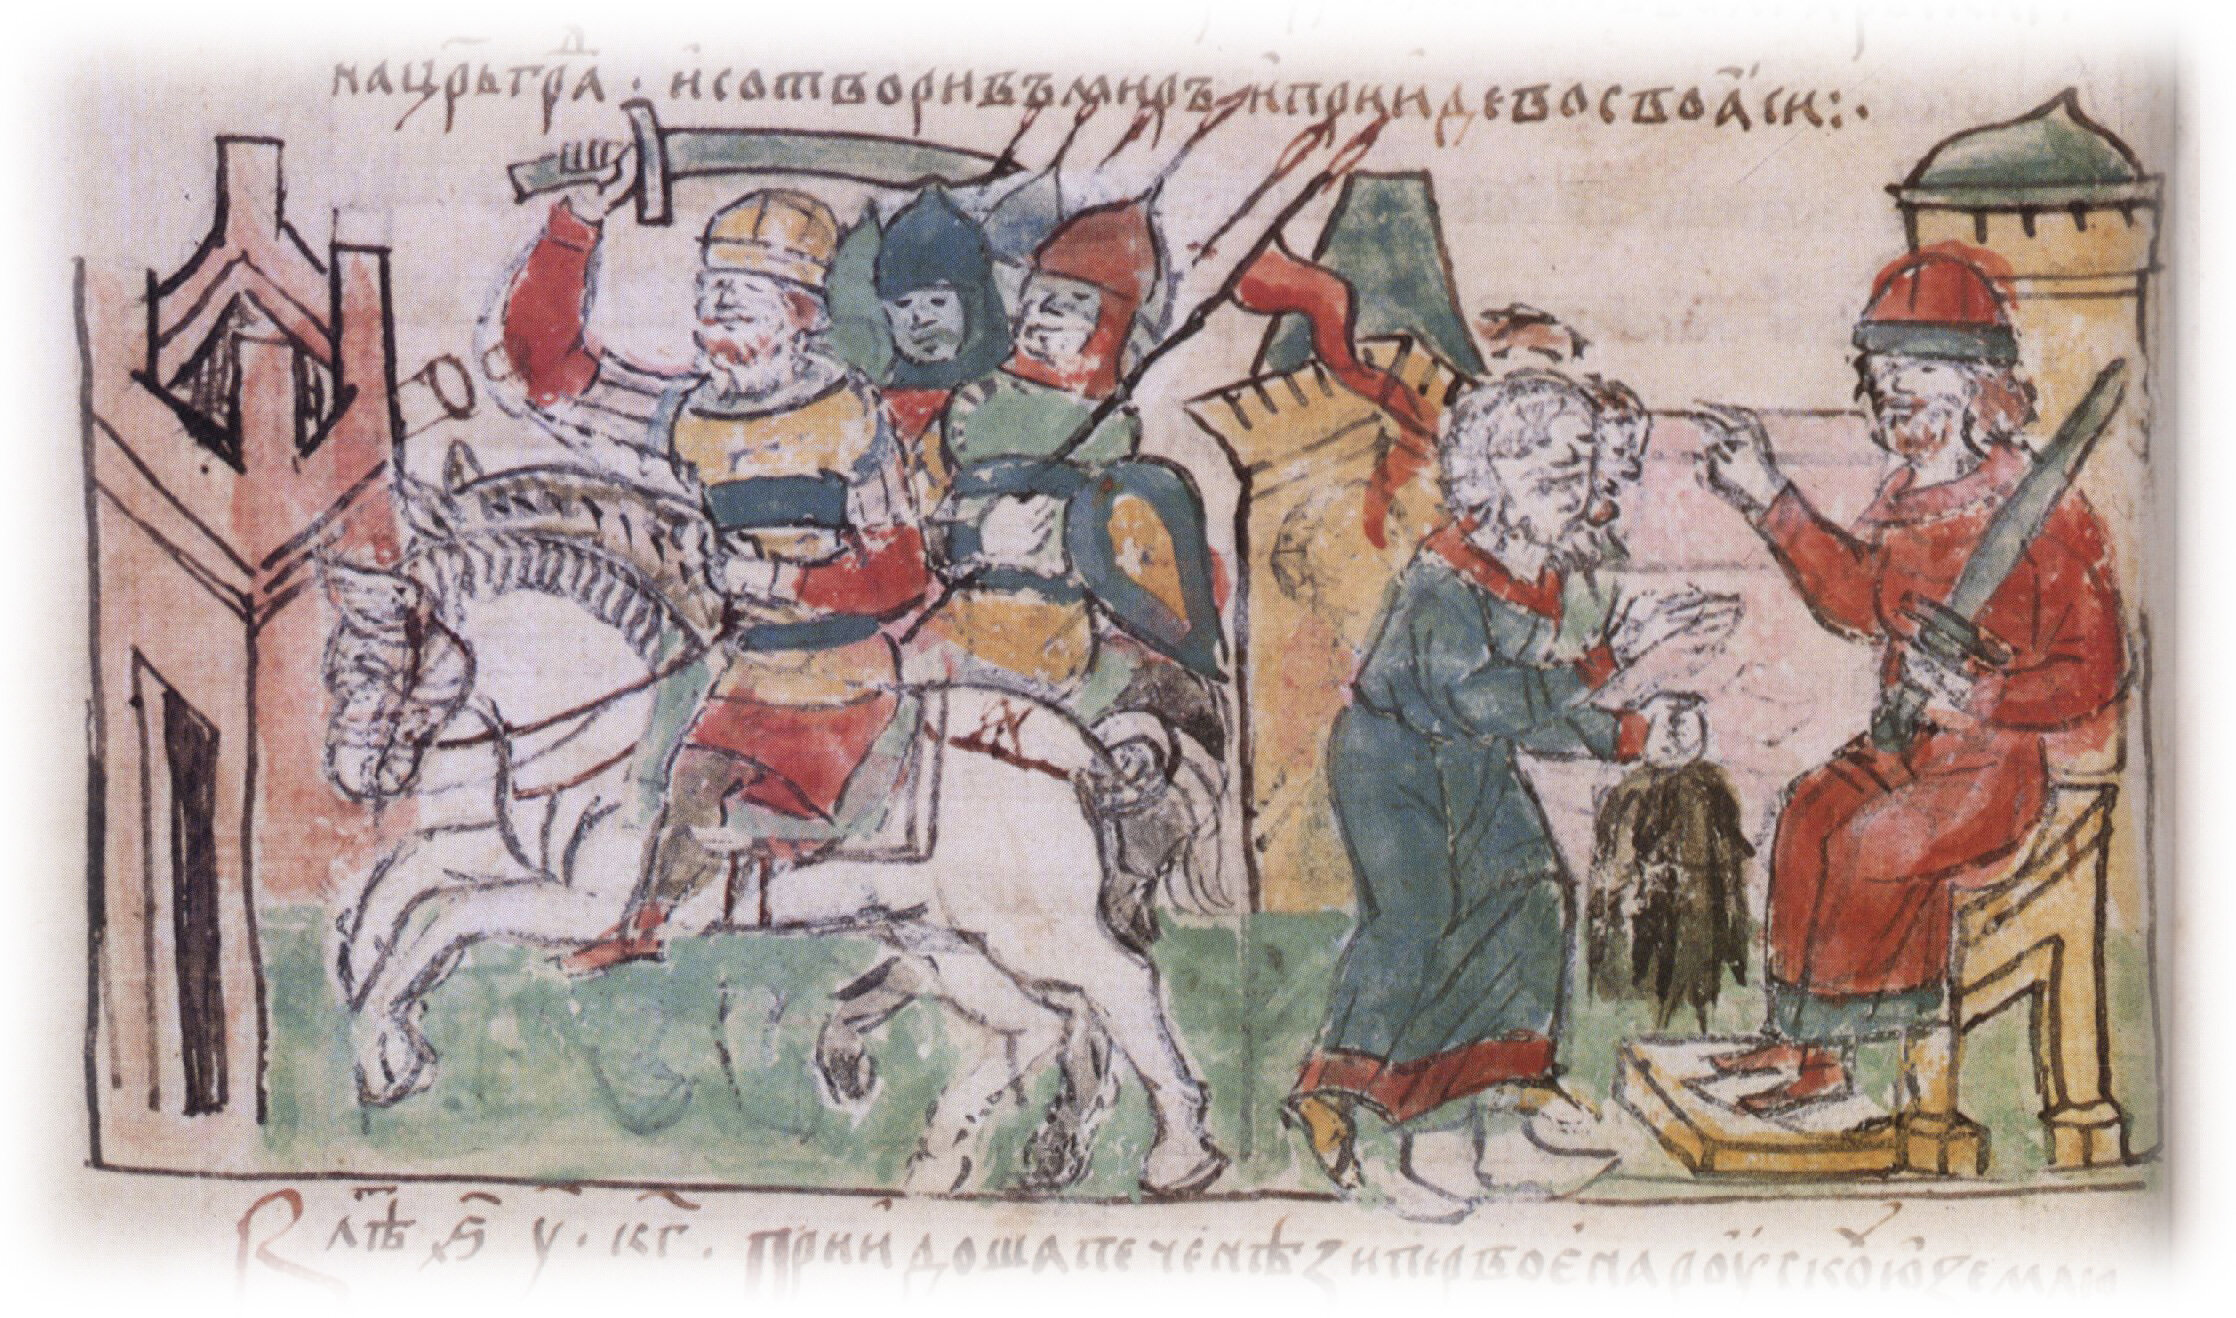 на цр҃ьгра д҃ · и сотворивъ миръ и прииде восвоаси:·
В лѣт҃ ҂ѕ҃ у҃ · кг҃ · приидоша печенѣзи первоє на роускоую землю